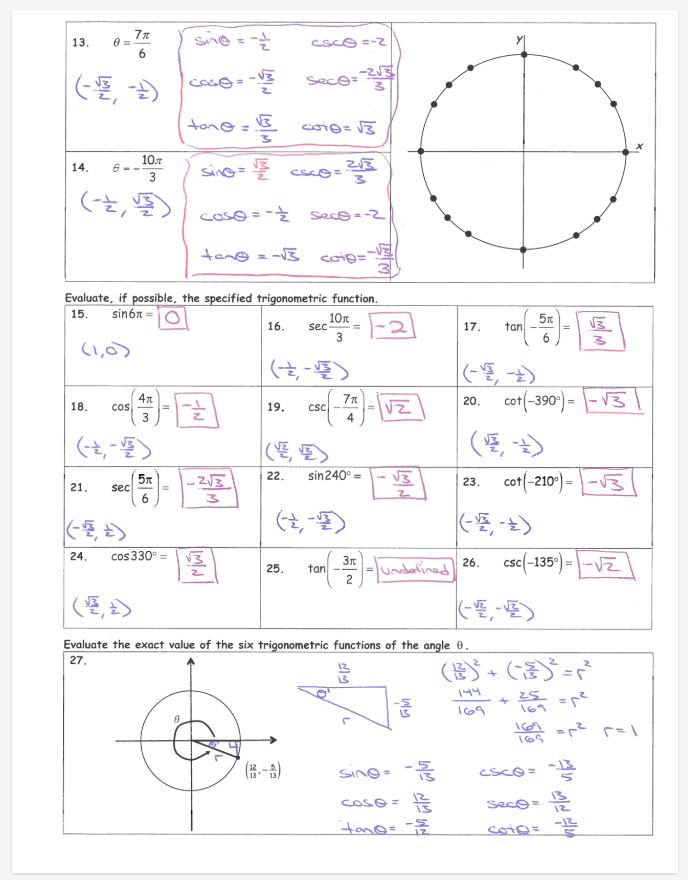 13. θ = 7π/6 sinθ = -1/2 cscθ = -2
(-√3/2, -1/2) cosθ = -√3/2 secθ = -2√3/3
tanθ = √3/3 cotθ = √3
y
x
14. θ = -10π/3 sinθ = √3/2 cscθ = 2√3/3
(-1/2, √3/2) cosθ = -1/2 secθ = -2
tanθ = -√3 cotθ = -√3/3
Evaluate, if possible, the specified trigonometric function.
15. sin6π = 0
(1,0)
16. sec 10π/3 = -2
(-1/2, -√3/2)
17. tan(-5π/6) = √3/3
(-√3/2, -1/2)
18. cos(4π/3) = -1/2
(-1/2, -√3/2)
19. csc(-7π/4) = √2
(√2/2, √2/2)
20. cot(-390°) = -√3
(√3/2, -1/2)
21. sec(5π/6) = -2√3/3
(-√3/2, 1/2)
22. sin240° = -√3/2
(-1/2, -√3/2)
23. cot(-210°) = -√3
(-√3/2, -1/2)
24. cos330° = √3/2
(√3/2, 1/2)
25. tan(-3π/2) = undefined
26. csc(-135°) = -√2
(-√2/2, -√2/2)
Evaluate the exact value of the six trigonometric functions of the angle θ.
27.
θ
θ'
r
(12/13, -5/13)
12/13
θ'
-5/13
r
(12/13)² + (-5/13)² = r²
144/169 + 25/169 = r²
169/169 = r² r = 1
sinθ = -5/13 cscθ = -13/5
cosθ = 12/13 secθ = 13/12
tanθ = -5/12 cotθ = -12/5